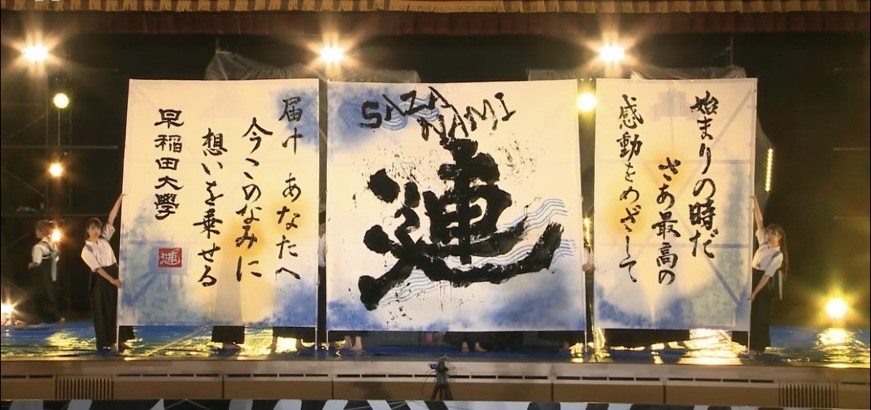 始まりの時だ
さあ最高の
感動をめざして
SAZA
NAMI
連
届け あなたへ
今このなみに
想いを乗せる
早稲田大學